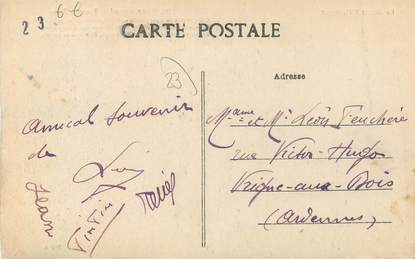 23 66
CARTE POSTALE
23
Adresse
Amical Souvenir
de
Jean
Tintin
René
Mame et Mr Léon Feuchère
rue Victor-Hugo
Vrigne-aux-Bois
(Ardennes)